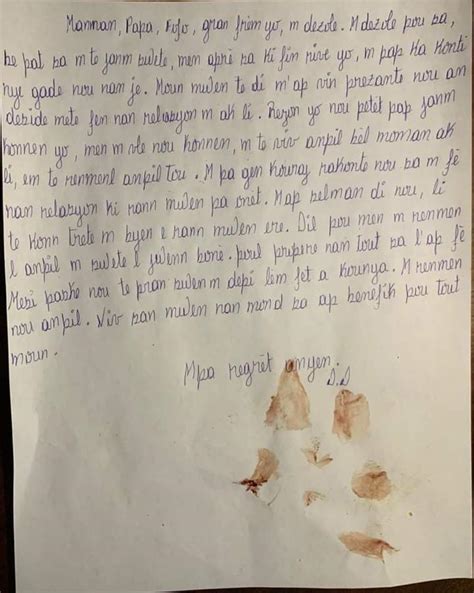 Manman, Papa, Fofo, gran frèm yo, m dezole. M dezole pou sa,
se pat sa m te janm swete, men aprè sa ki fin rive yo, m pap ka konti
nye gade nou nan je. Moun mwen te di m'ap vin prezante nou an
deside mete fen nan relasyon m ak li. Rezon yo nou petèt pap janm
konnen yo, men m vle nou konnen, m te viv anpil bèl moman ak
li, e m te renmenl anpil tou. M pa gen kouraj rakonte nou sa m fè
nan relasyon ki rann mwen pa onèt. Map sèlman di nou, li
te konn trete m byen e rann mwen ere. Di l pou mwen m renmen
l anpil m swete l jwenn bonè. poul pwospere nan tout sa l'ap fè
Mèsi paske nou te pran swen m depi lèm fèt a kounya. M renmen
nou anpil. Viv san mwen nan mond sa ap benefik pou tout
moun.
Mpa regrèt anyen.
D.D